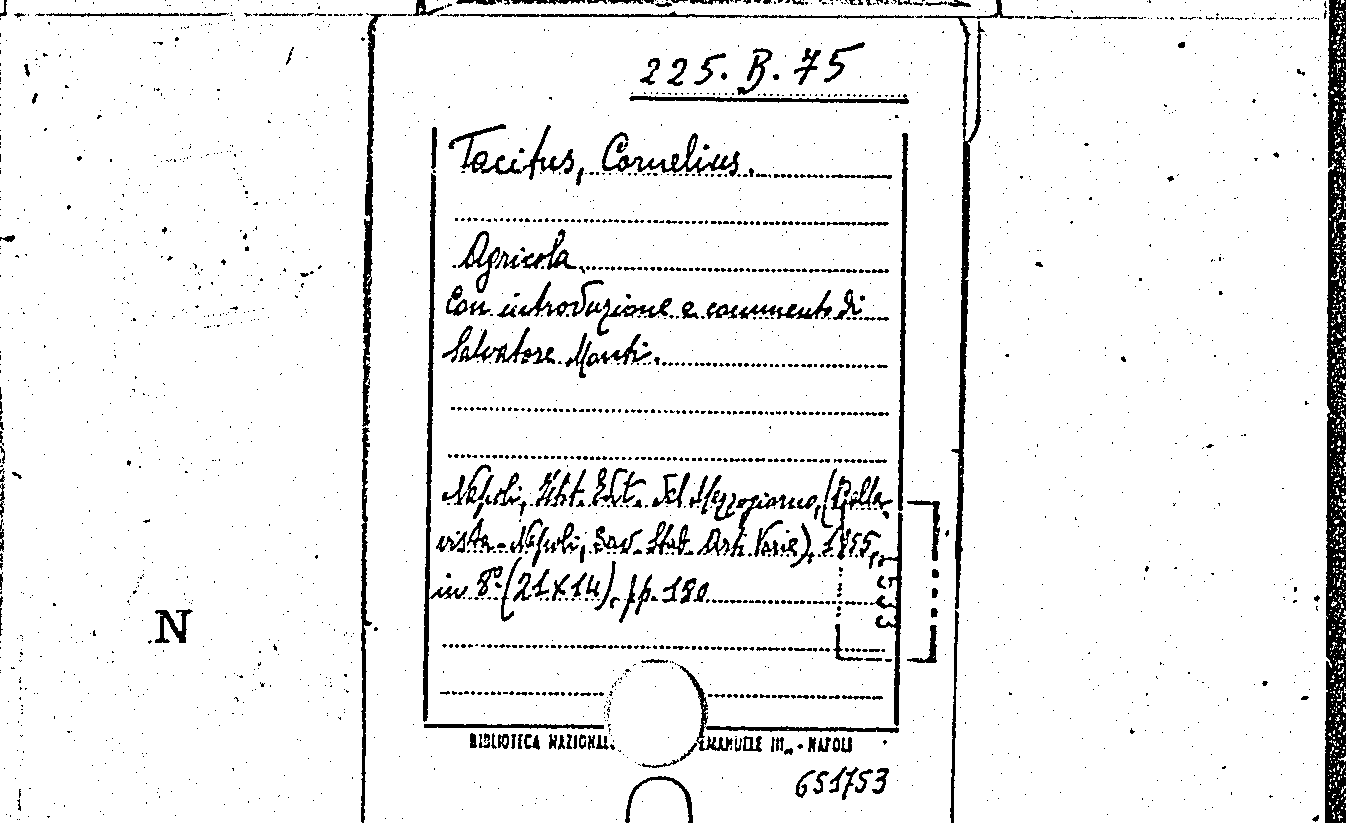 225. B. 75
Tacitus, Cornelius.
Agricola
Con introduzione e commento di
Salvatore Monti.
Napoli, Ist. Edit. del Mezzogiorno, (Bella-
vista-Napoli, Sav. Stab. Arti Varie), 1955,
in 8° (21x14), pp. 180
N
BIBLIOTECA NAZIONAL EMANUELE III - NAPOLI
651753